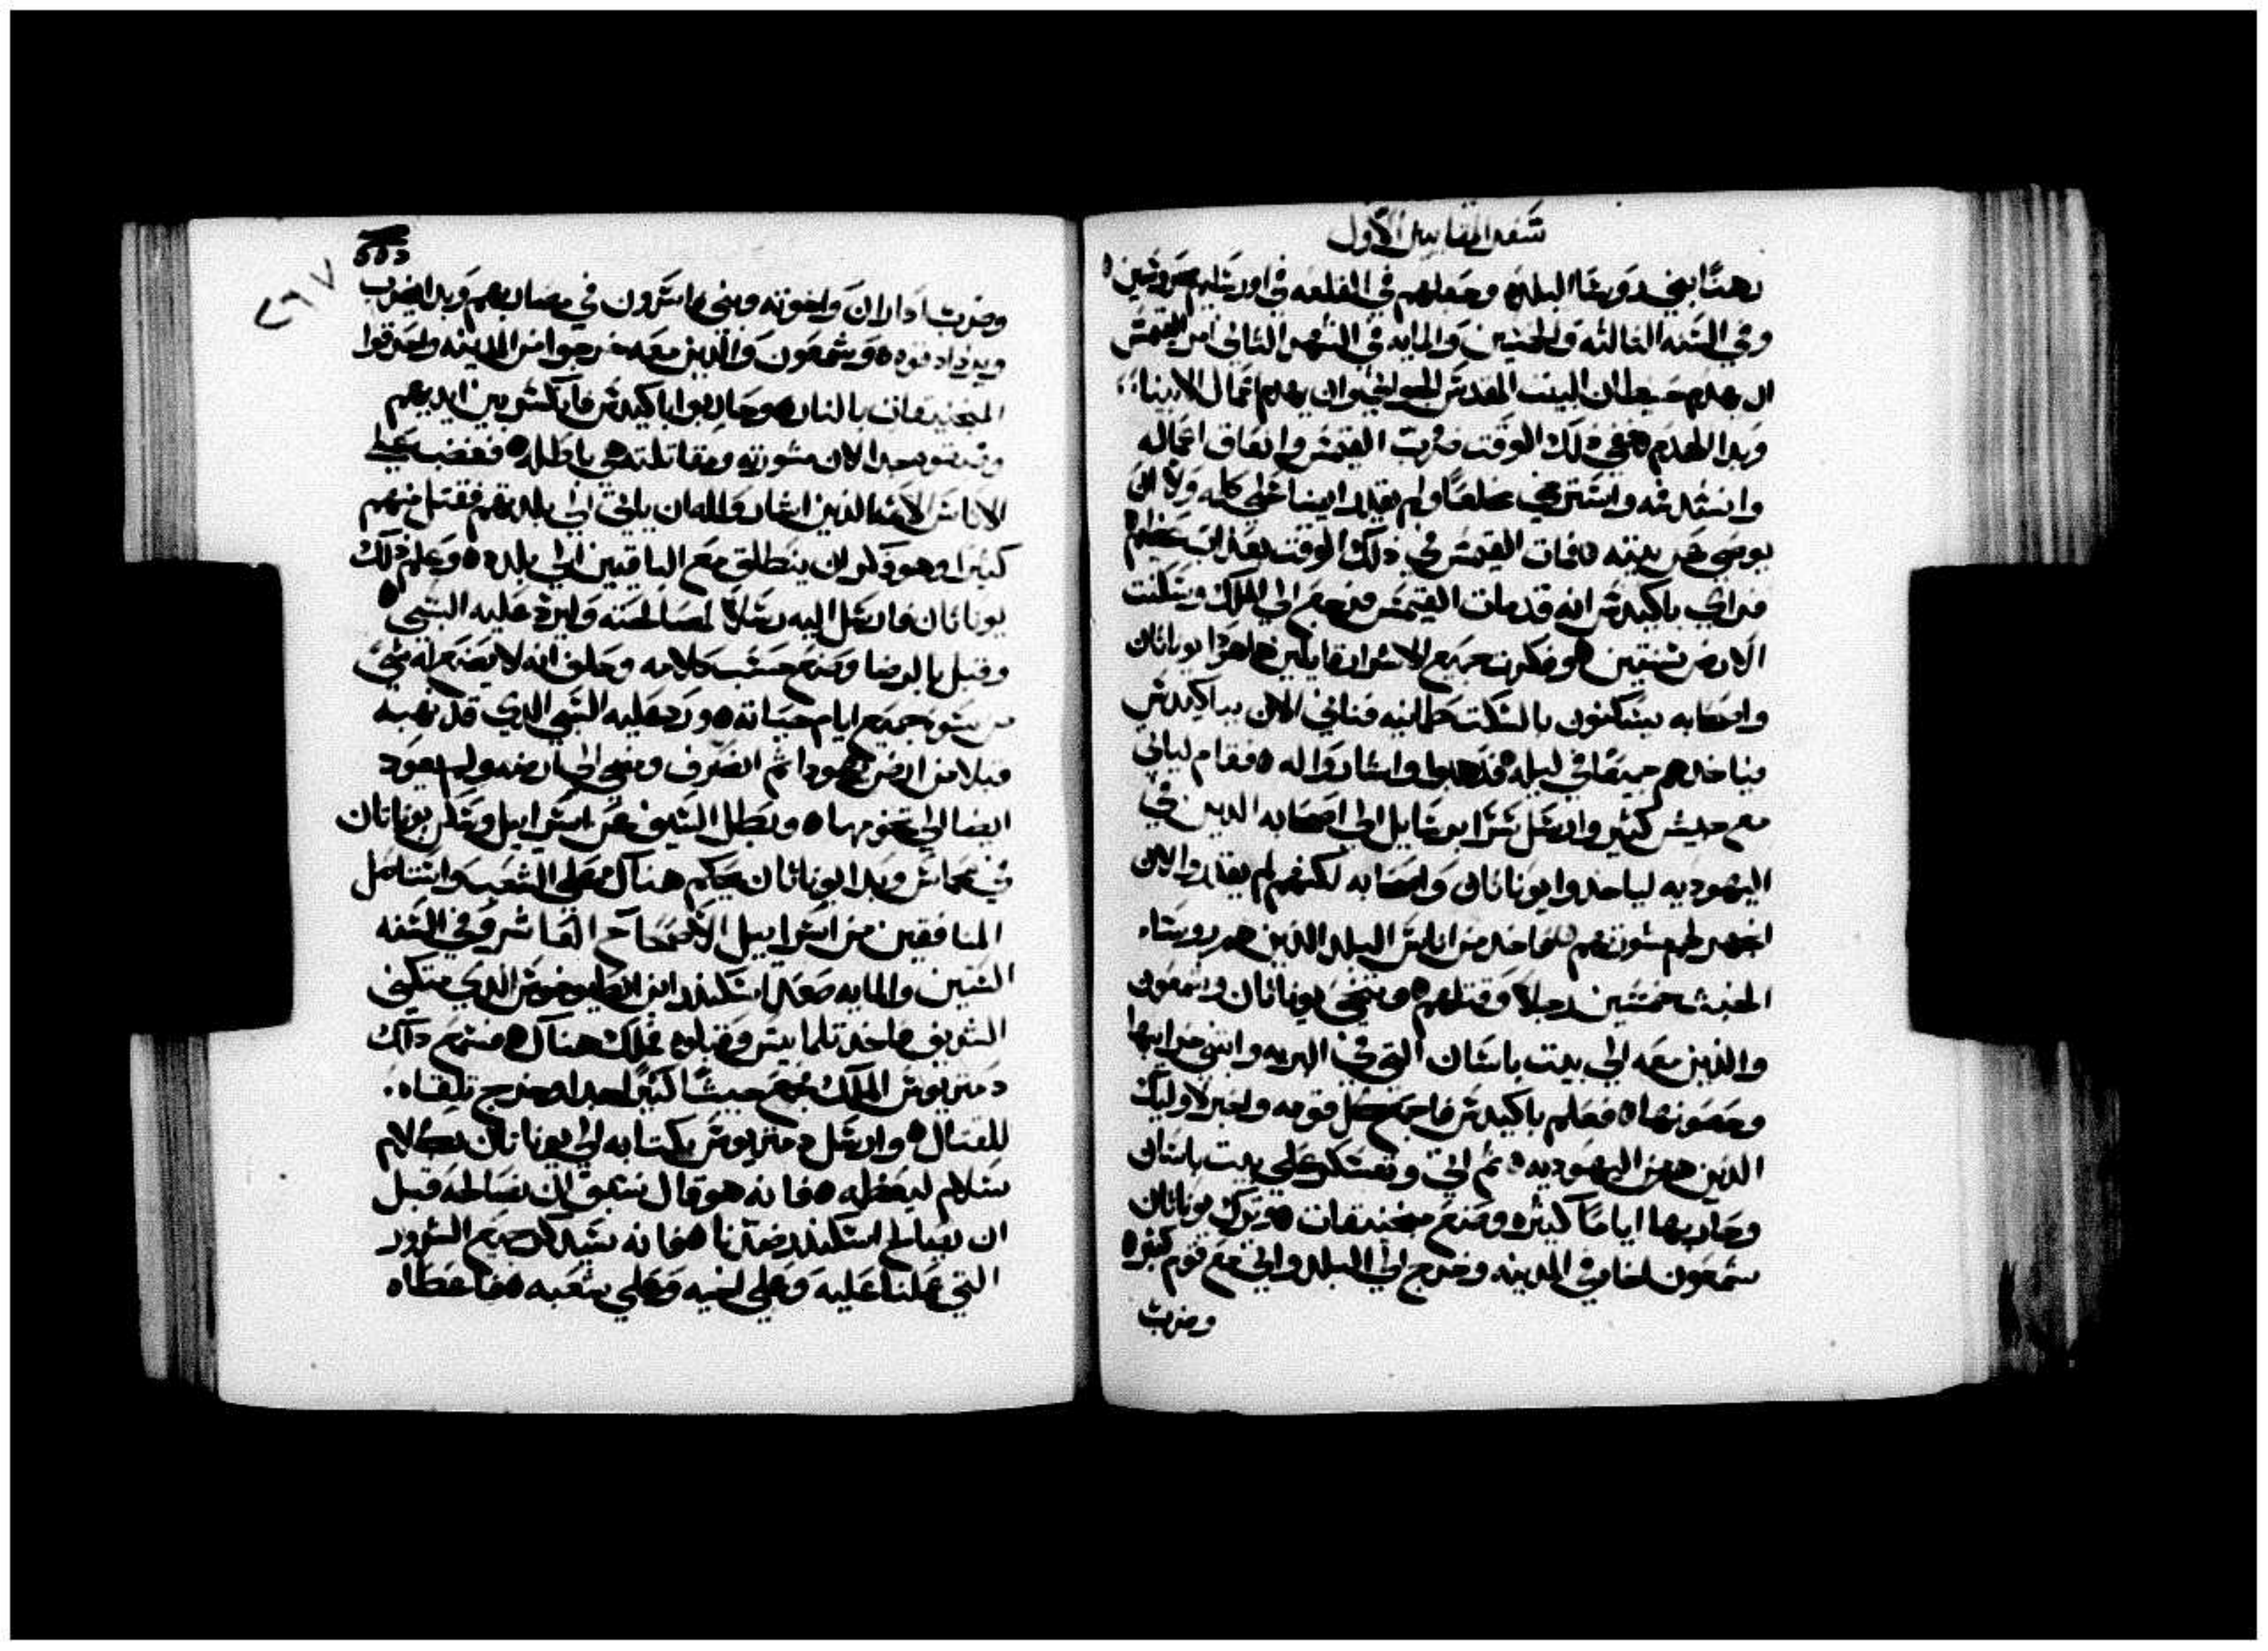 سفر المقابيين الاول
رهنًا بني روسا البلده وجعلهم في القلعه في اورشليم محروسين
وفي السنه الثالثه والخمسين والمايه في الشهر الثاني امر القيمس
ان يهدم حيطان البيت المقدس الجواني وان يهدم اعمال الانبياء
وبدا الهدم ففي ذلك الوقت ضرب القيمس وانعاق اعماله
وانسد فمه واسترخي مخلعًا ولم يقدر ايضا يتكلم كلمه ولا ان
يوصي عن بيته فمات القيمس في ذلك الوقت بعذاب عظيم
فراي باكيدس انه قد مات القيمس فرجع الي الملك وسكنت
الارض سنتين وفكروا جميع الاشرار قايلين هاهوذا يوناتان
واصحابه يسكنون بالسكت طمانيه فناتي الان بباكيدس
فياخذهم جميعًا في ليله فذهبوا واشاروا له فقام لياتي
مع جيش كثير وارسل سرًا برسايل الي اصحابه الذين في
اليهوديه لياخذوا يوناتان واصحابه لكنهم لم يقدروا لان
اشتهر لهم مشورتهم فاخذ من اناس البلد الذين هم روساء
الخبث خمسين رجلاً وقتلهم وتنحي يوناتان وشمعون
والذين معه الي بيت باسان التي في البريه وابتني خرابها
وحصونها فعلم باكيدس فاجمع كل قومه واخبر لاوليك
الذين من اليهوديه ثم اتي وتعسكر علي بيت باسان
وحاربها ايامًا كثيره وصنع منجنيقات وترك يوناتان
شمعون اخاه في المدينه وخرج الي البلد واتي مع قوم كثيره
وضرب
وضرب اداران واخوته وبني فاسرون في مضاربهم وبدا يضرب
ويزداد قوه وشمعون والذين معه خرجوا من المدينه واحرقوا
المنجنيقات بالنار وحاربوا باكيدس فانكسر بين ايديهم
وضيقوه جدا لان مشورته ومقاتلته هي باطله فغضب علي
الاناس الاثمه الذين اشاروا له ان ياتي الي بلدتهم فقتل منهم
كثيرا وهو فكر ان ينطلق مع الباقيين الي بلده وعلم ذلك
يوناتان فارسل اليه رسلاً لمصالحته وليرد عليه السبي
وقبل بالرضا وصنع حسب كلامه وحلف انه لا يصنع له شيً
من سوء جميع ايام حياته ورد عليه السبي الذي قد نهبه
قبلا من ارض يهودا ثم انصرف ومضي الي ارضه ولم يعود
ايضا الي تخومها وبطل السيف عن اسراييل وسكن يوناتان
في مخماس وبدا يوناتان يحكم هناك علي الشعب واستاصل
المنافقين من اسراييل الاصحاح العاشر وفي السنه
الستين والمايه صعد اسكندر ابن انطيوخوس الذي متكني
الشريف فاخذ تلمايس وقبلوه فملك هناك فسمع ذلك
دمتريوس الملك فجمع جيشًا كثيرًا جدا وخرج تلقاه
للقتال وارسل دمتريوس بكتابه الي يوناتان بكلام
سلام ليعظمه فانه هو قال نسبق ان نصالحه قبل
ان يصالح اسكندر ضدنا فانه سيذكر جميع الشرور
التي عملنا عليه وعلي اخيه وعلي شعبه فاعطاه